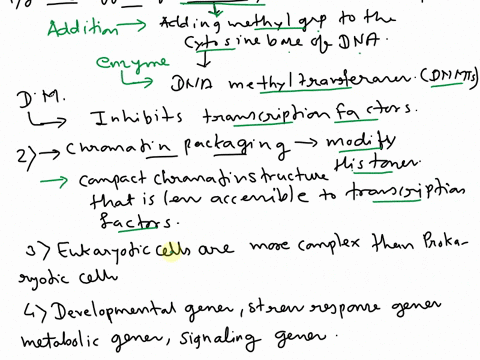 Addition → Adding methyl grp to the
Cytosine base of DNA.
enzyme
DNA methyltransferaser. (DNMTs)
D.M.
Inhibits transcription factors.
2) → Chromatin packaging → modify
Histoner.
→ Compact chromatin structure
that is less accessible to transcription
factors.
3) Eukaryotic cells are more complex than Proka-
ryotic cells
4) Developmental gener, stress response gener
metabolic gener, signaling gener.